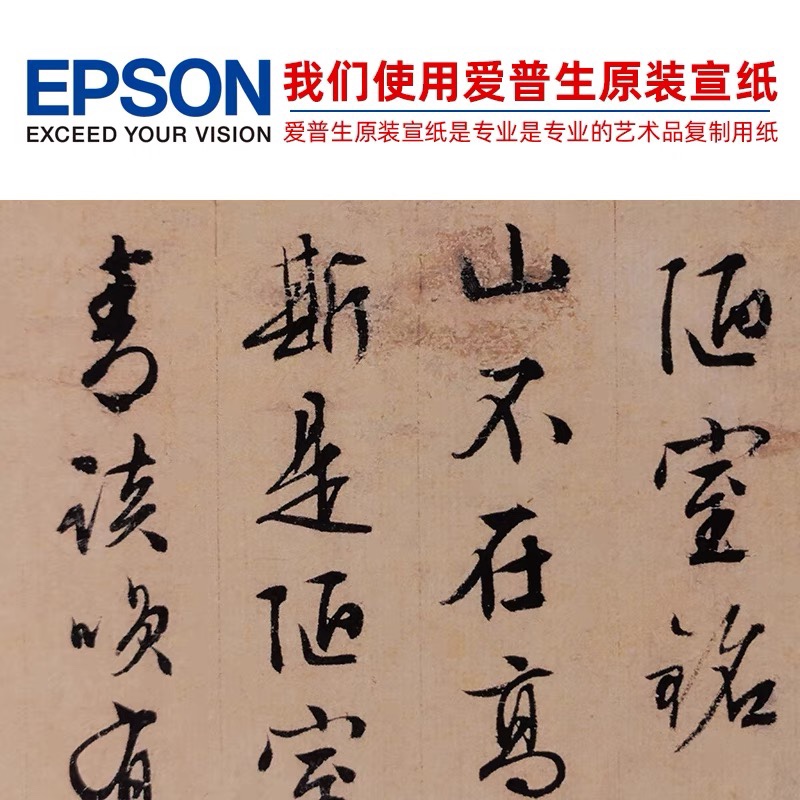 EPSON
EXCEED YOUR VISION
我们使用爱普生原装宣纸
爱普生原装宣纸是专业是专业的艺术品复制用纸
陋室銘
山不在高
斯是陋室
青談咲有